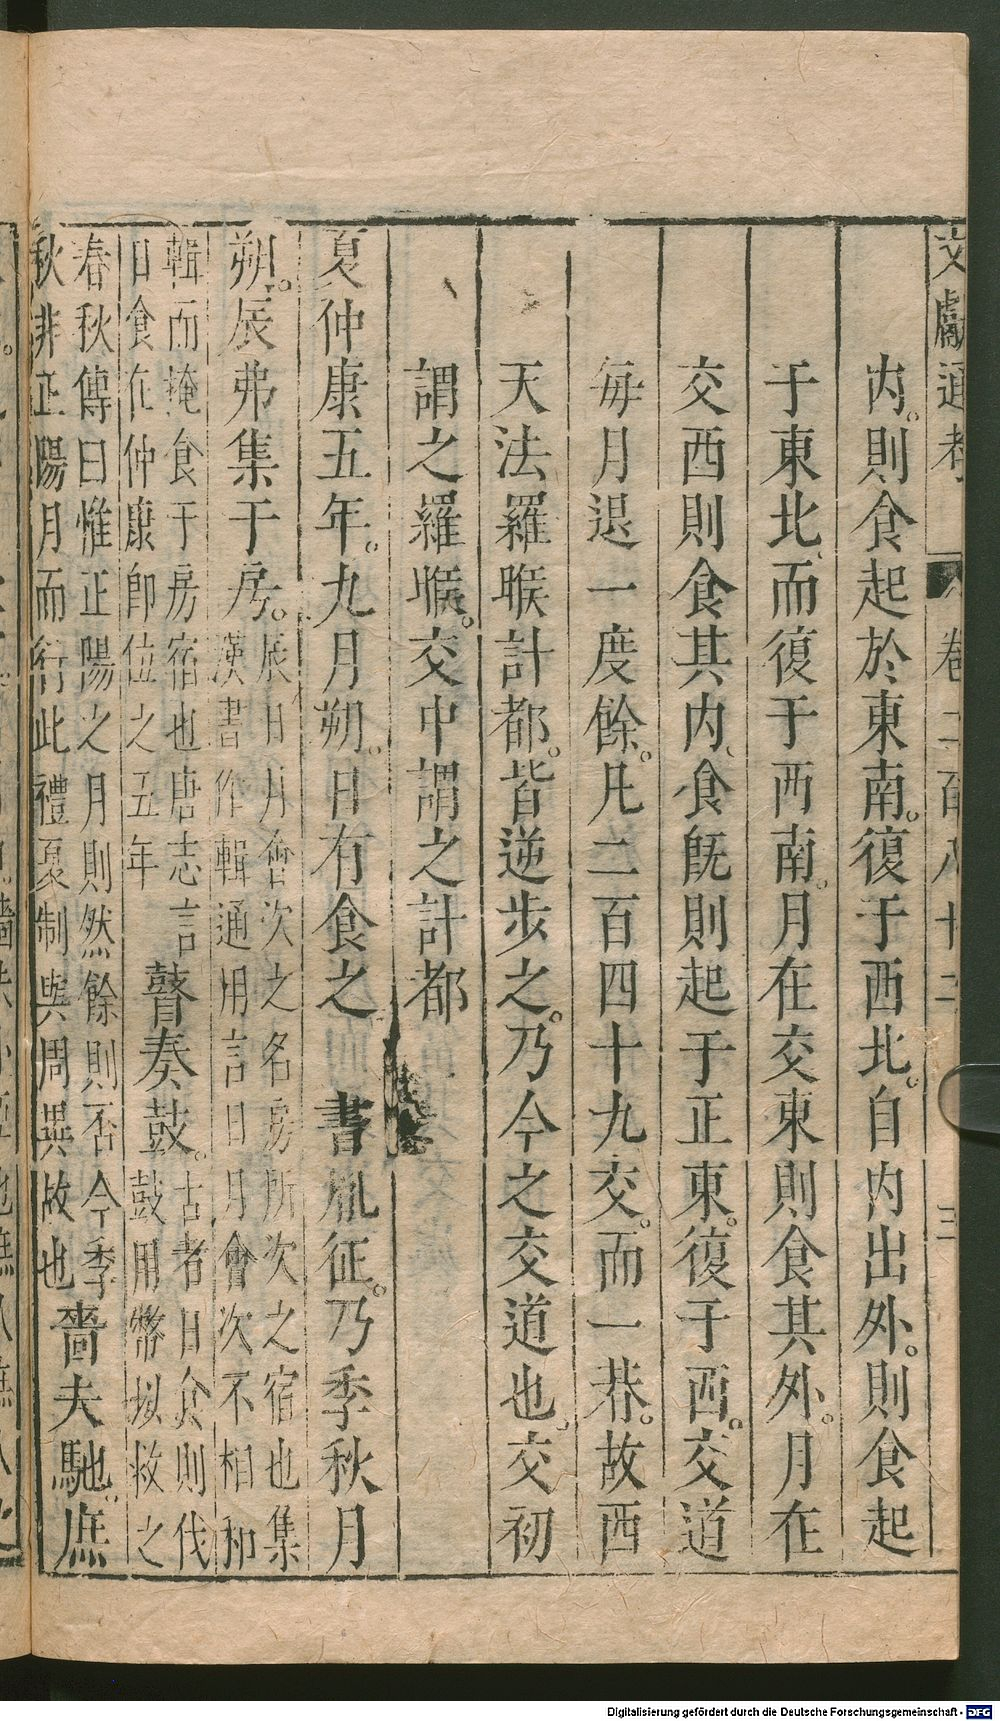 文獻通考 卷二百八十二 三
内。則食起於東南。復于西北。自内出外。則食起
于東北、而復于西南。月在交東則食其外。月在
交西則食其内、食旣則起于正東。復于西。交道
每月退一度餘。凡二百四十九交。而一朞。故西
天法羅睺計都。皆逆步之。乃今之交道也。交初
謂之羅睺。交中謂之計都
夏仲康五年。九月朔。日有食之 書胤征。乃季秋月
朔。辰弗集于房。
辰日月會次之名房所次之宿也集
漢書作輯通用言日月會次不相和
輯而掩食于房宿也唐志言
日食在仲康卽位之五年
瞽奏鼓。
古者日食則伐
鼓用幣以救之
春秋傳曰惟正陽之月則然餘則否今季
秋非正陽月而行此禮夏制與周異故也
嗇夫馳。庶
Digitalisierung gefördert durch die Deutsche Forschungsgemeinschaft - DFG